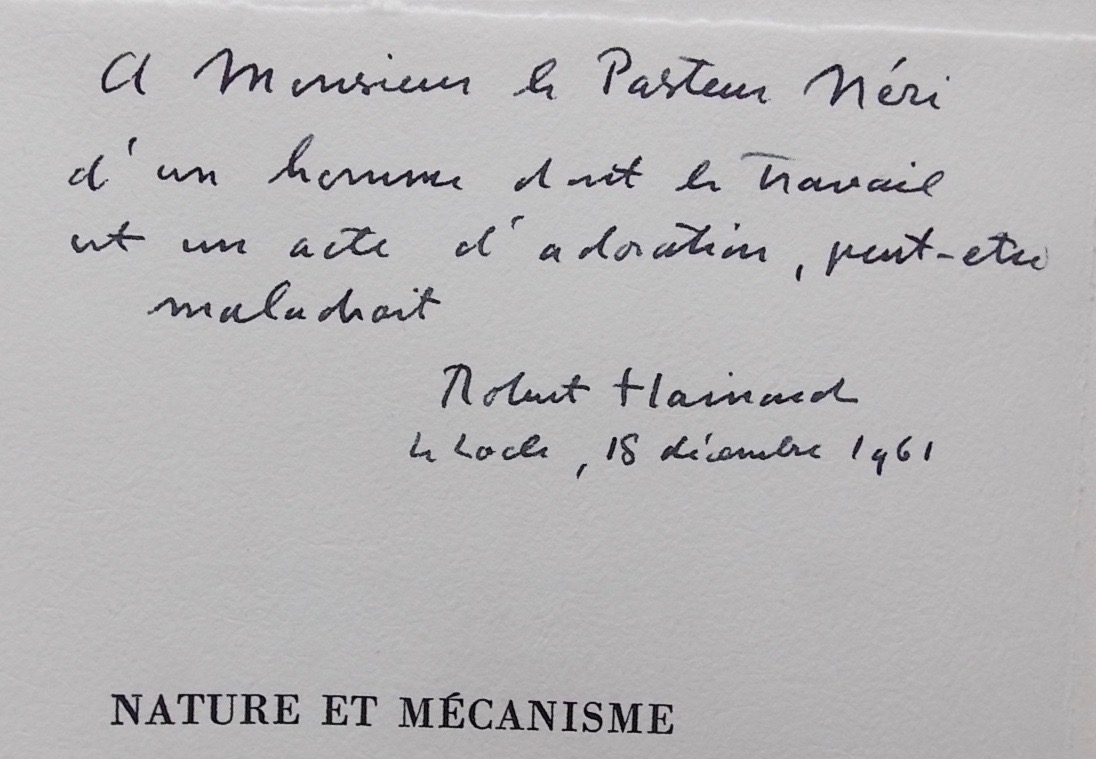 A Monsieur le Pasteur Néri
d'un homme dont le travail
est un acte d'adoration, peut-etre
maladroit
Robert Hainard
Le Locle, 18 décembre 1961
NATURE ET MÉCANISME